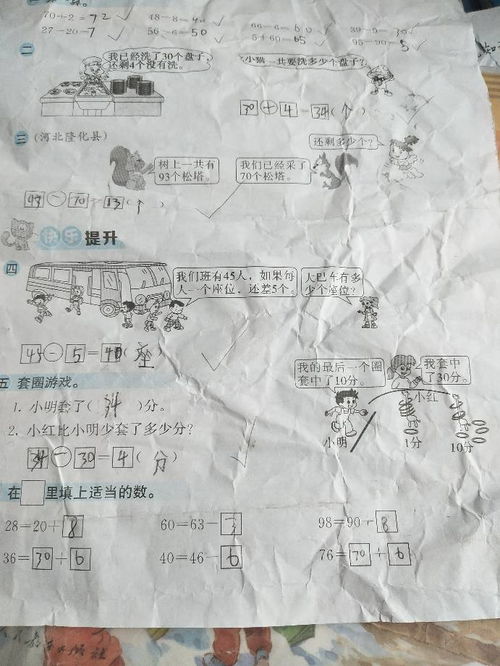 70+2=72 48-8=40 66-6=60 39-9=30
27-20=7 56-6=50 5+60=65 95-90=5
二
我已经洗了30个盘子,
还剩4个没有洗。
小猫一共要洗多少个盘子?
30+4=34(个)
三 (河北隆化县)
还剩多少个?
树上一共有
93个松塔。
我们已经采了
70个松塔。
93-70=23(个)
快乐提升
四
我们班有45人,如果每
人一个座位,还差5个。
大巴车有多
少个座位?
45-5=40(座)
五 套圈游戏。
我的最后一个圈
套中了10分。
我套中
了30分。
小红
1. 小明套了(34)分。
小明
1分
10分
2. 小红比小明少套了多少分?
34-30=4(分)
在□里填上适当的数。
28=20+8 60=63-3 98=90+8
36=30+6 40=46-6 76=70+6